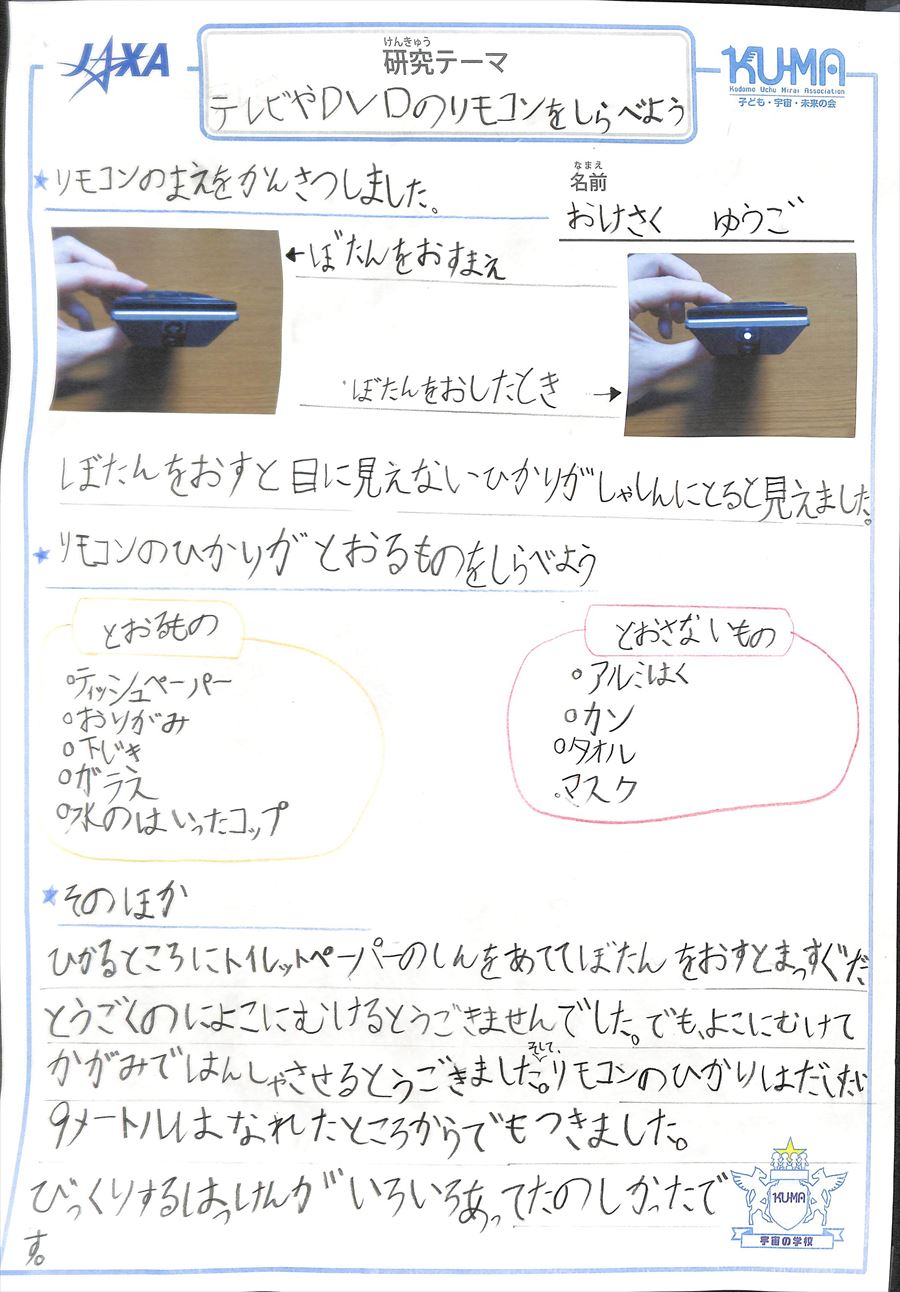 JAXA
けんきゅう
研究テーマ
テレビやDVDのリモコンをしらべよう
KU-MA
Kodomo Uchu Mirai Association
子ども・宇宙・未来の会
リモコンのまえをかんさつしました。
なまえ
名前
おけさく ゆうご
←ぼたんをおすまえ
ぼたんをおしたとき→
ぼたんをおすと目に見えないひかりがしゃしんにとると見えました。
リモコンのひかりがとおるものをしらべよう
とおるもの
ティッシュペーパー
おりがみ
下じき
ガラス
水のはいったコップ
とおさないもの
アルミはく
カン
タオル
マスク
そのほか
ひかるところにトイレットペーパーのしんをあててぼたんをおすとまっすぐだ
とうごくのによこにむけるとうごきませんでした。でも、よこにむけて
かがみではんしゃさせるとうごきました。そして、リモコンのひかりはだいたい
9メートルはなれたところからでもつきました。
びっくりするはっけんがいろいろあってたのしかったで
す。
KU-MA
宇宙の学校